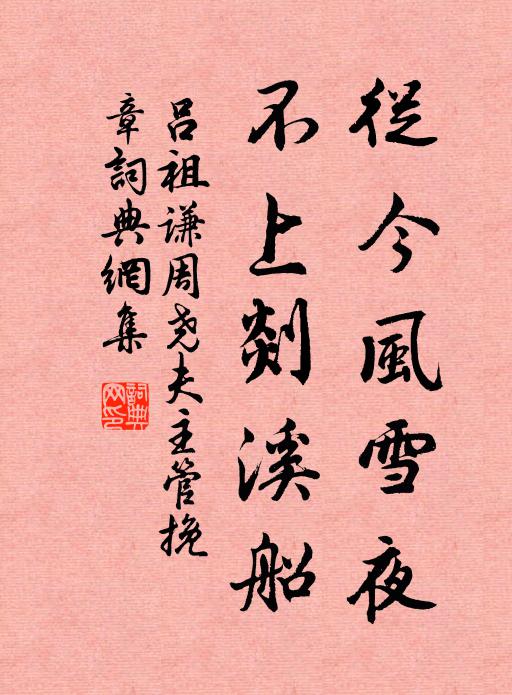 從今風雪夜
不上剡溪船
呂祖谦周尧夫主管挽
章詞典網集
詞典网印